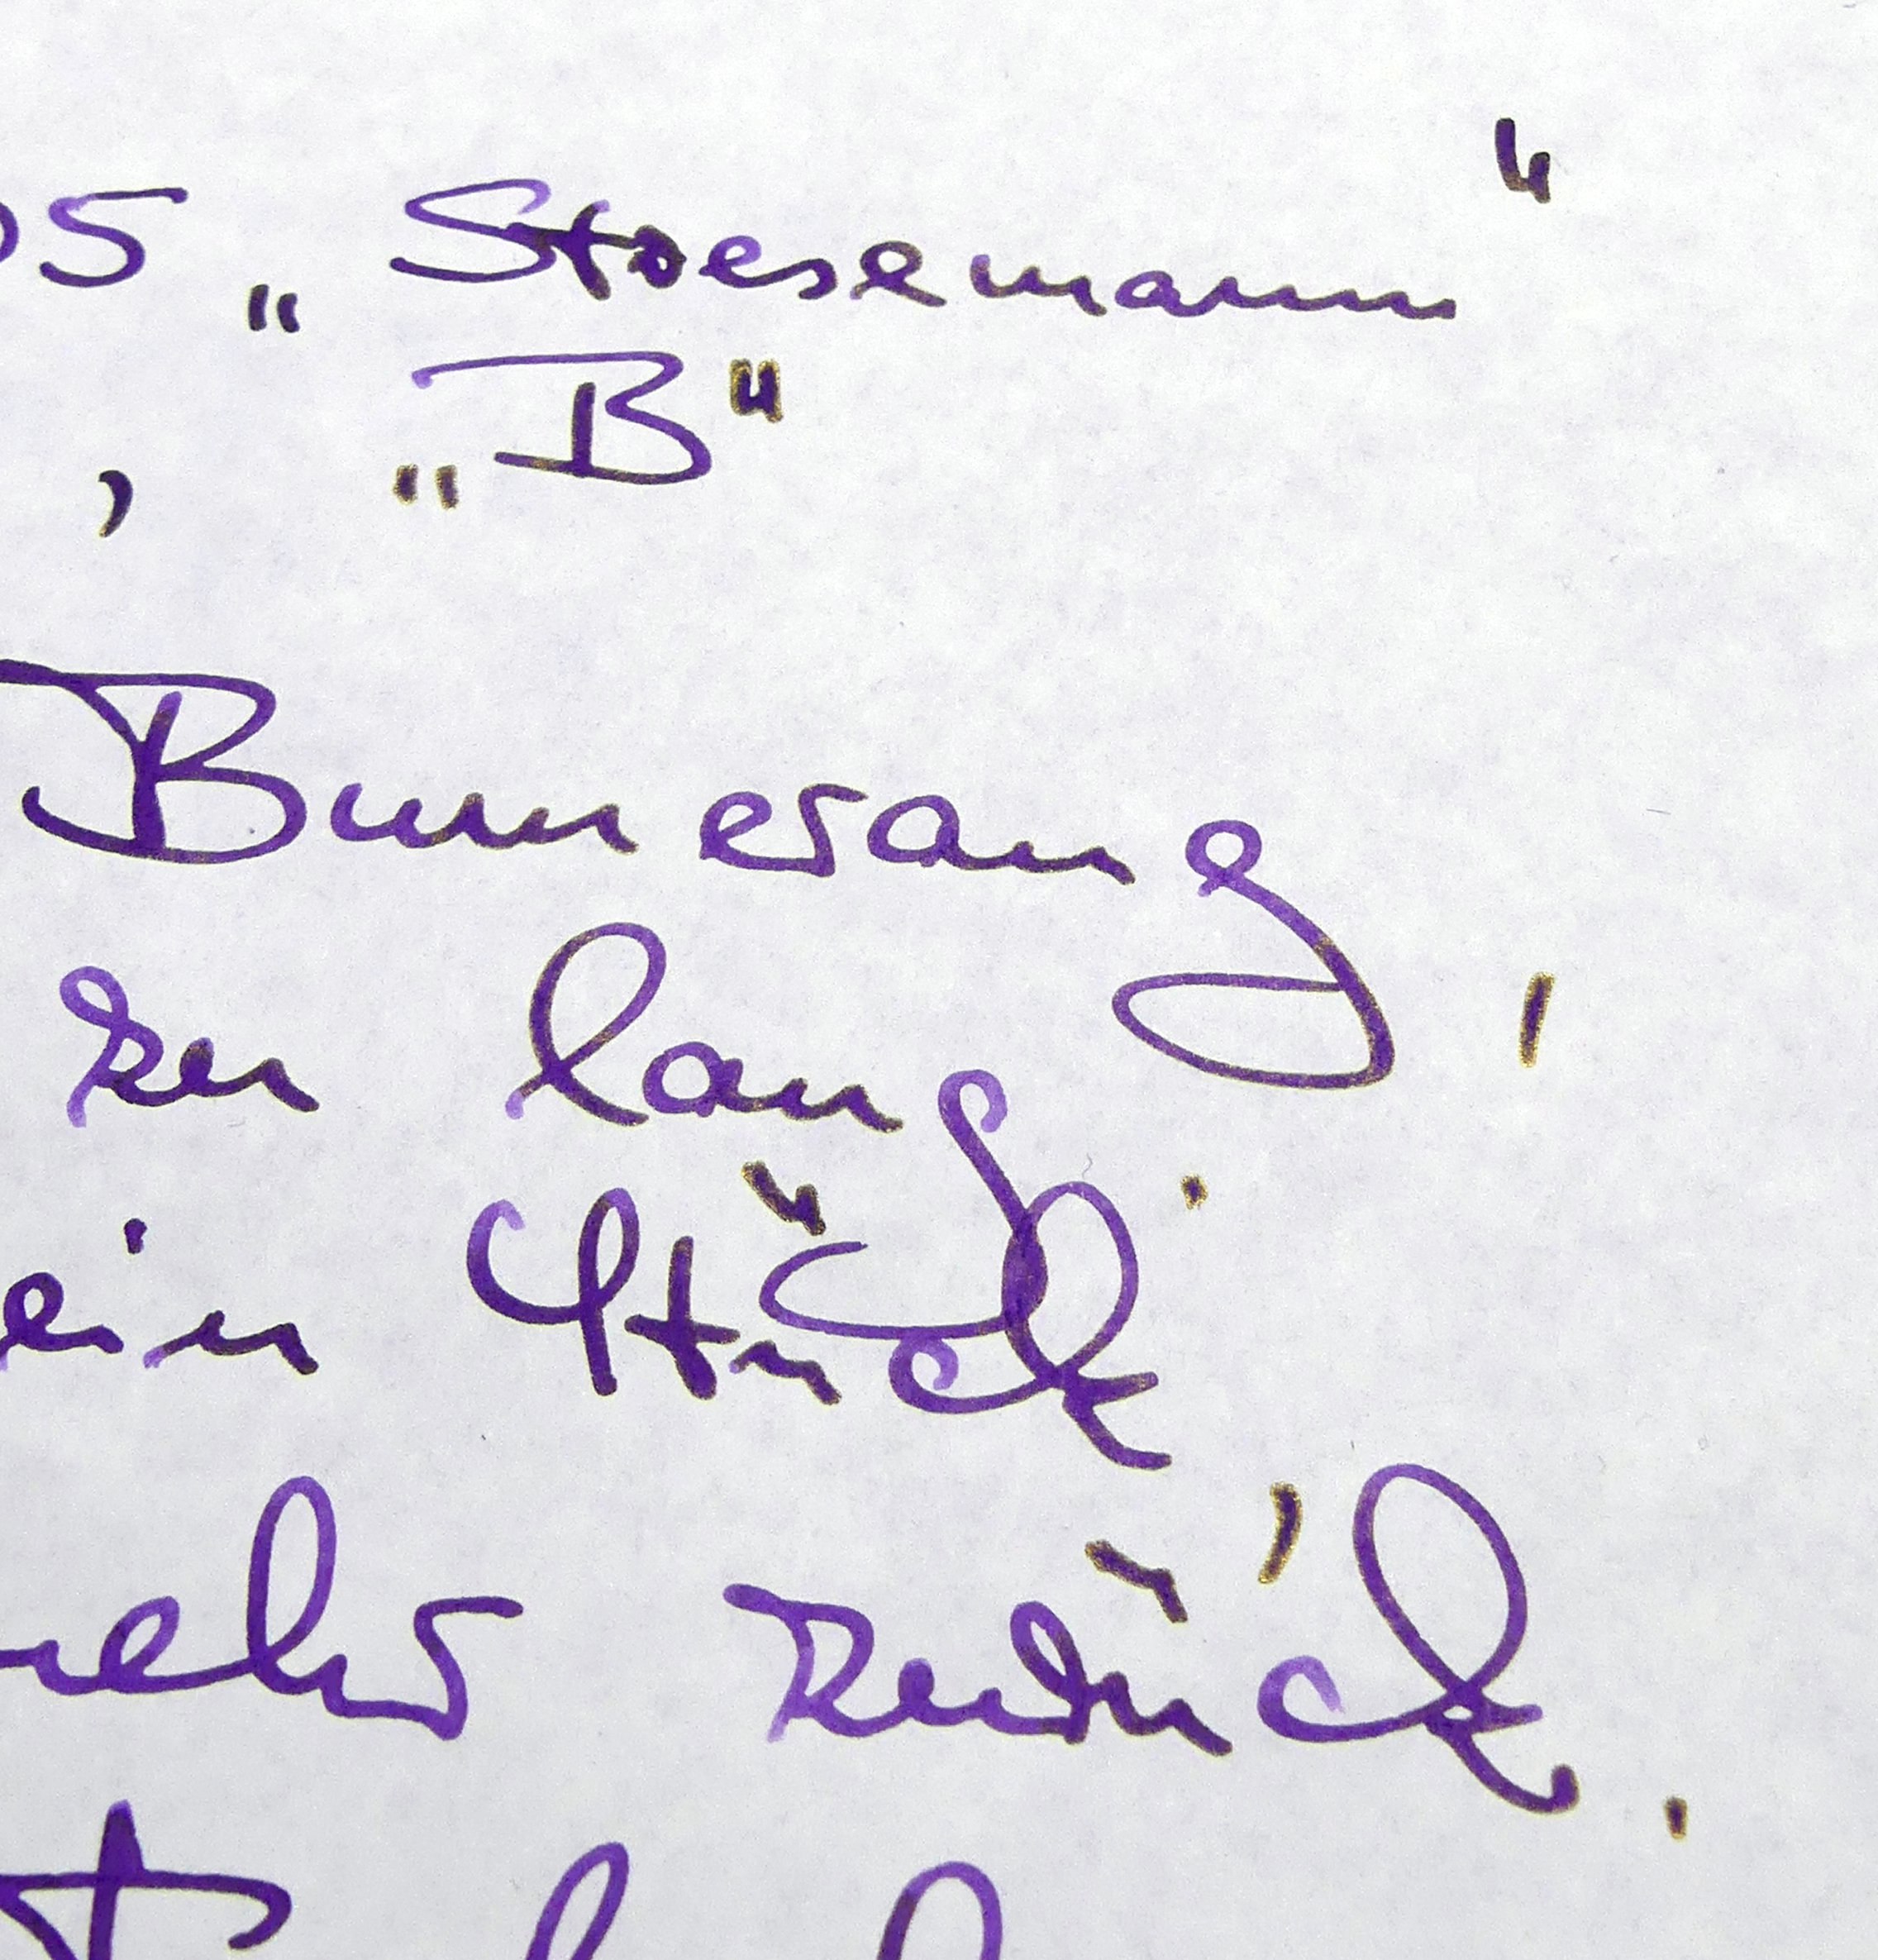 05 „Stresemann“
, „B“
Bumerang,
zu lang.
ein Stück,
mehr zurück.